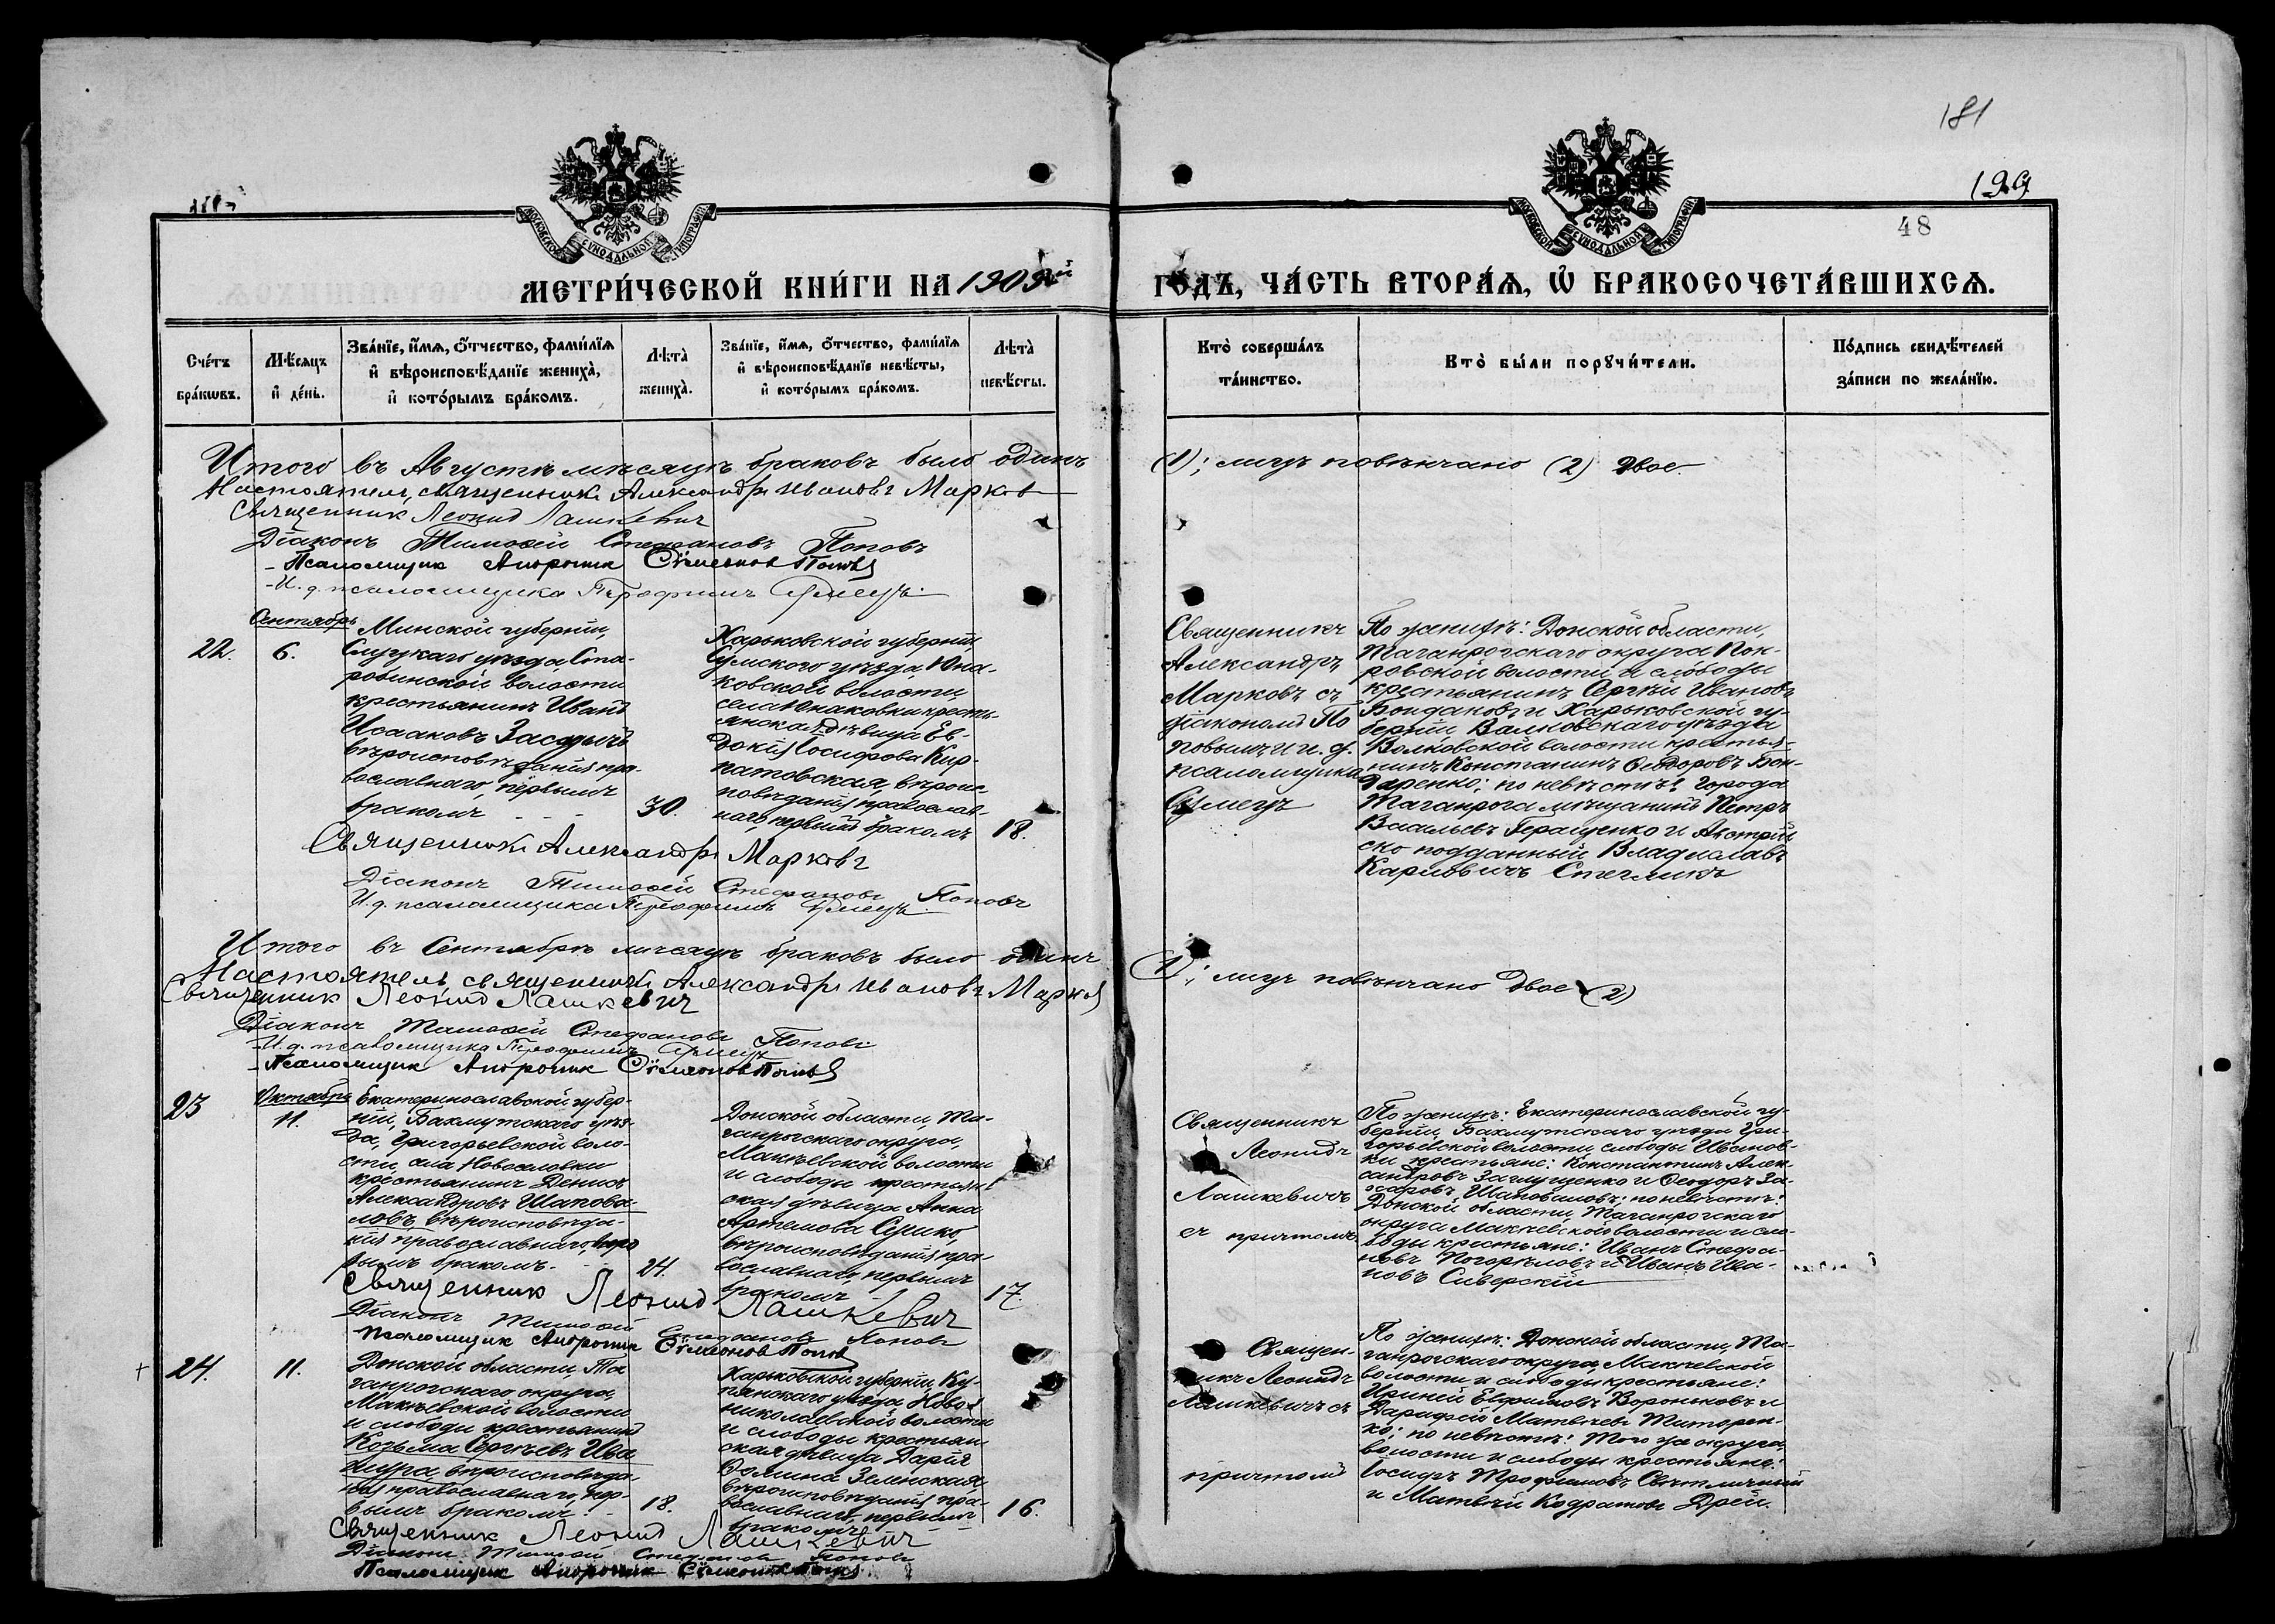 181
199
48
МОСКОВСКОЙ СѴНОДАЛЬНОЙ ТИПОГРАФІИ
МОСКОВСКОЙ СѴНОДАЛЬНОЙ ТИПОГРАФІИ
МЕТРИ́ЧЕСКОЙ КНИ́ГИ НА 1909й
ГОДЪ, ЧА́СТЬ ВТОРА́Ѧ, Ѡ҆ БРАКОСОЧЕТА́ВШИХСѦ.
Сче́тъ
бра́кѡвъ.
Мѣ́сяцъ
и҆ де́нь.
Зва́нїе, и҆́мѧ, ѻ҆́тчество, фами́лїѧ
и҆ вѣроисповѣ́данїе жениха̀,
и҆ кото́рымъ бра́комъ.
Лѣта̀
жениха̀.
Зва́нїе, и҆́мѧ, ѻ҆́тчество, фами́лїѧ
и҆ вѣроисповѣ́данїе невѣ́сты,
и҆ кото́рымъ бра́комъ.
Лѣта̀
невѣ́сты.
Кто̀ соверша́лъ
та́инство.
Кто̀ бы́ли порꙋчи́тели.
По́дпись свидѣ́телей
за́писи по жела́нїю.
Итого въ Августѣ мѣсяцѣ браковъ было одинъ
(1); лицъ повѣнчано (2) двое
Настоятель, священникъ Александръ Ивановъ Марковъ
Священник Леонид Лашкевич
Діаконъ Тимоѳей Стефановъ Поповъ
Псаломщик Андроник Сѵмеонов Попов
И. д. псаломщика
Сентябрь
22.
6.
Минской губерніи,
Слуцкаго уѣзда Ста-
робинской волости
крестьянинъ Иванъ
Исааковъ
вѣроисповѣданія пра-
вославнаго, первымъ
бракомъ
30.
Харьковской губерніи
Сумского уѣзда, Юна-
ковской волости
села Юнаковки кресть-
янская дѣвица Ев-
докія Іосифова Кур-
натовская, вѣроис-
повѣданія православ-
наго, первымъ бракомъ
18.
Священникъ
Александръ
Марковъ съ
діакономъ По
повымъ и и. д.
псаломщика
По женихѣ: Донской области,
Таганрогскаго округа
ровской волости и слободы
крестьянинъ Сергѣй Ивановъ
и Харьковской гу-
берніи Валковскаго уѣзда
Валковской волости крестья-
нинъ Константинъ Ѳеодоровъ Бон-
даренко; по невѣстѣ: города
Таганрога мѣщанинъ Петръ
Васильевъ Геращенко и Австрій
ско подданный Владиславъ
Карловичъ
Священникъ Александръ Марковъ
Діаконъ Тимоѳей Стефановъ Поповъ
И. д. псаломщика
Итого въ Сентябрѣ мѣсяцѣ браковъ было одинъ
(1); лицъ повѣнчано двое (2)
Настоятель, священникъ Александръ Ивановъ Марковъ
Священник Леонид Лашкевич
Діаконъ Тимоѳей Стефановъ Поповъ
И. д. псаломщика
Псаломщик Андроник Сѵмеонов Попов
Октябрь
23
11.
Екатеринославской губер-
ніи, Бахмутскаго уѣз-
да, Григорьевской воло-
сти, села Новоселовки
крестьянинъ Денисъ
Александровъ Шапова-
ловъ, вѣроисповѣда-
нія православнаго,
рымъ бракомъ.
24.
Донской области, Та-
ганрогскаго округа,
Макѣевской волости
и слободы крестьян-
ская дѣвица Анна
Артемова
вѣроисповѣданія пра-
вославнаго, первымъ
бракомъ
17.
Священникъ
Леонидъ
Лашкевичъ
съ причтомъ
По женихѣ: Екатеринославской гу-
берніи, Бахмутскаго уѣзда Гри-
горьевской волости, слободы Иванов-
ки крестьяне: Константинъ Алек-
сандровъ и Ѳеодоръ За-
Шаповаловъ; по невѣстѣ:
Донской области, Таганрогскаго
округа Макѣевской волости и сло-
боды крестьяне: Иванъ Стефа-
новъ Погорѣловъ и Иванъ Ива-
новъ Сиверскій
Священник Леонид Лашкевич
Діаконъ Тимоѳей Стефановъ Поповъ
Псаломщик Андроник Сѵмеонов Попов
24.
11.
Донской области, Та
ганрогскаго округа,
Макѣевской волости
и слободы крестьянинъ
Козьма Сергѣевъ
вѣроисповѣда-
нія православнаго, пер-
вымъ бракомъ
18.
Харьковской губерніи, Ку-
пянскаго уѣзда Ново
николаевской волости
и слободы крестьян-
ская дѣвица Дарія
Ѳомина Зеленская,
вѣроисповѣданія пра-
вославнаго, первымъ
бракомъ
16.
Священ-
никъ Леонидъ
Лашкевичъ съ
причтомъ
По женихѣ: Донской области, Та-
ганрогскаго округа, Макѣевской
волости и слободы крестьяне:
Ириней Евфимовъ Вороньковъ и
Матвѣевъ Титорен-
ко; по невѣстѣ: Того же округа,
волости и слободы крестьяне:
Іосифъ Трофимовъ Свѣтличный
и Матвѣй Кодратовъ
Священник Леонид Лашкевич
Діаконъ Тимоѳей Стефановъ Поповъ
Псаломщик Андроник Сѵмеонов Попов